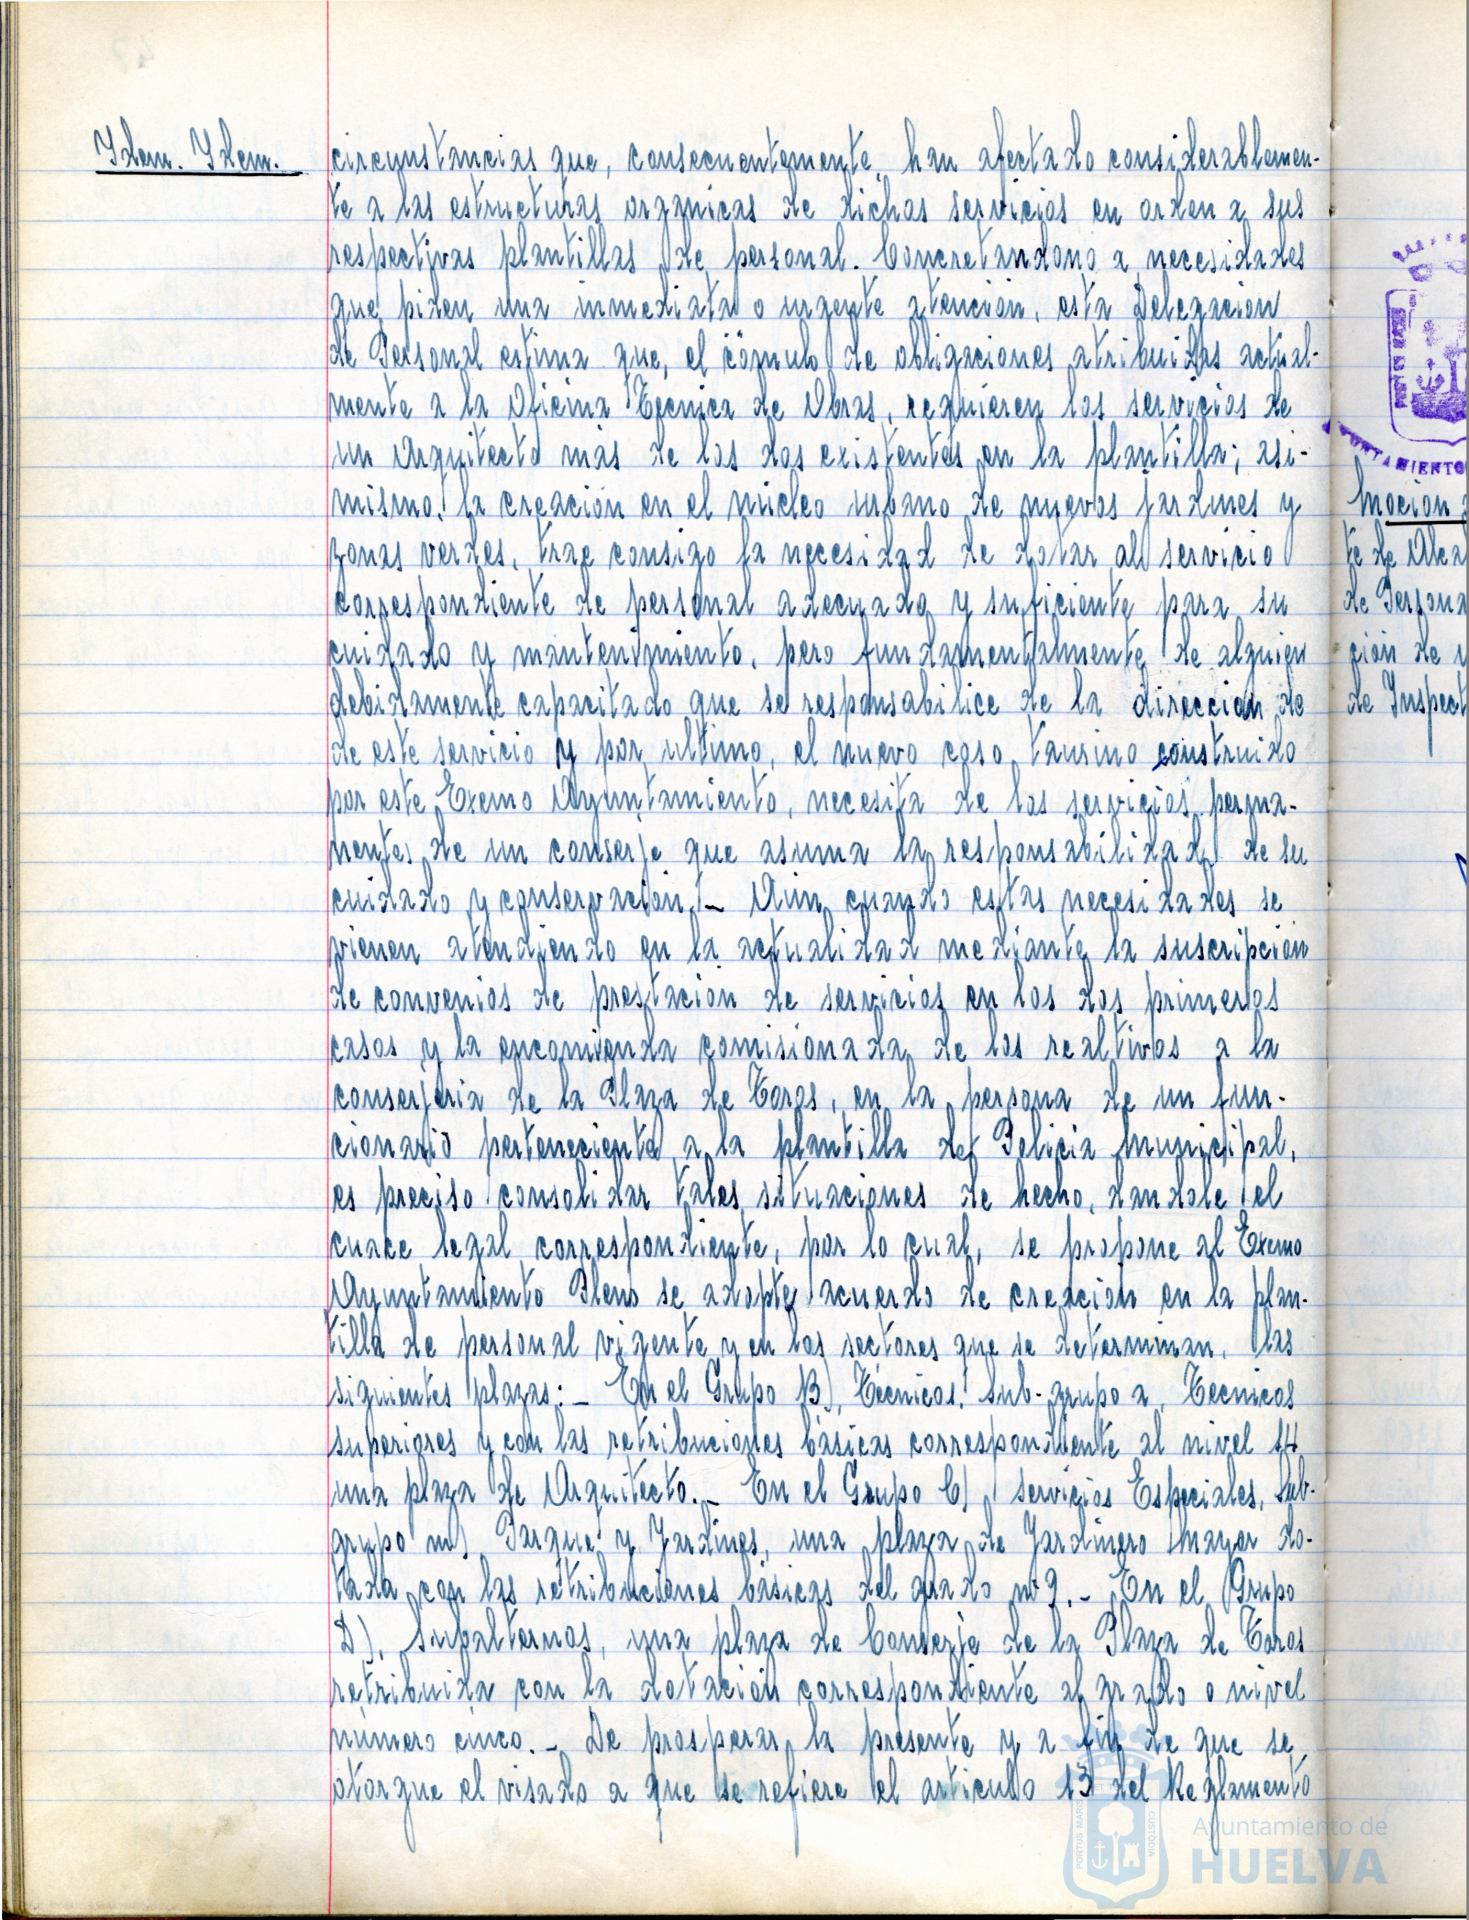 Idem. Idem.
circunstancias que, consecuentemente, han afectado considerablemen-
te a las estructuras organicas de dichos servicios en orden a sus
respectivas plantillas de personal. Concretandono a necesidades
que piden una inmediata o urgente atención, esta Delegacion
de Personal estima que, el cómulo de obligaciones atribuidas actual-
mente a la Oficina Tecnica de Obras, requieren los servicios de
un Arquitecto más de los dos existentes en la plantilla; asi-
mismo, la creación en el núcleo urbano de nuevos jardines y
zonas verdes, trae consigo la necesidad de dotar al servicio
correspondiente de personal adecuado y suficiente para su
cuidado y mantenimiento, pero fundamentalmente de alguien
debidamente capacitado que se responsabilice de la direccion de
de este servicio y por ultimo, el nuevo coso taurino construido
por este Exemo Ayuntamiento, necesita de los servicios perma-
nentes de un conserje que asuma la responsabilidad de su
cuidado y conservación.- Aún cuando estas necesidades se
vienen atendiendo en la actualidad mediante la suscripción
de convenios de prestación de servicios en los dos primeros
casos y la encomienda comisionada de los realtivos a la
conserjeria de la Plaza de Toros, en la persona de un fun-
cionario perteneciente a la plantilla de Policia Municipal,
es preciso consolidar tales situaciones de hecho, dandole el
cuace legal correspondiente, por lo cual, se propone al Exemo
Ayuntamiento Pleno se adopte acuerdo de creación en la plan-
tilla de personal vigente y en los sectores que se determinan, las
siguientes plazas:- En el Grupo B), Técnicos. Sub-grupo a, Tecnicos
superiores y con las retribuciones básicas correspondiente al nivel
una plaza de Arquitecto.- En el Grupo C) servicios Especiales, Sub-
grupo m) Parque y Jardines, una plaza de Jardinero Mayor do-
tada con las retribuciones básicas del grado nº 9.- En el Grupo
D). Subalternos, una plaza de Conserje de la Plaza de Toros
retribuida con la dotación correspondiente al grado o nivel
número cinco.- De prosperar la presente y a fin de que se
otorgue el visado a que se refiere el articulo 13 del Reglamento
Moción
te de Alcal
de Persona
ción de
de Inspect
Ayuntamiento de
HUELVA